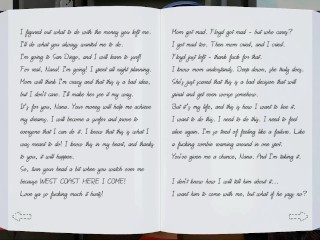 I figured out what to do with the money you left me.
I'll do what you always wanted me to do.
I'm going to San Diego, and I will learn to surf!
For real, Nana! I'm going! I spent all night planning.
Mom will think I'm crazy and that this is a bad idea,
but I don't care. I'll make her see it my way.
It's for you, Nana. Your money will help me achieve
my dreams. I will become a surfer and prove to
everyone that I can do it. I know that this is what I
was meant to do! I know this in my heart, and thanks
to you, it will happen.
So, turn your head a bit when you watch over me
because WEST COAST HERE I COME!
Love ya so fucking much it hurts!
Mom got mad. Floyd got mad - but who cares?
I got mad too. Then mom cried, and I cried.
Floyd just left - thank fuck for that.
I know mom understands. Deep down, she truly does.
She's just scared that this is a bad decision that will
good and get even worse somehow.
But it's my life, and this is how I want to live it.
I want to do this, I need to do this. I need to feel
alive again. I'm so tired of feeling like a failure. Like
a fucking zombie running around in one spot.
You've given me a chance, Nana. And I'm taking it.
I don't know how I will tell him about it...
I want him to come with me, but what if he says no?